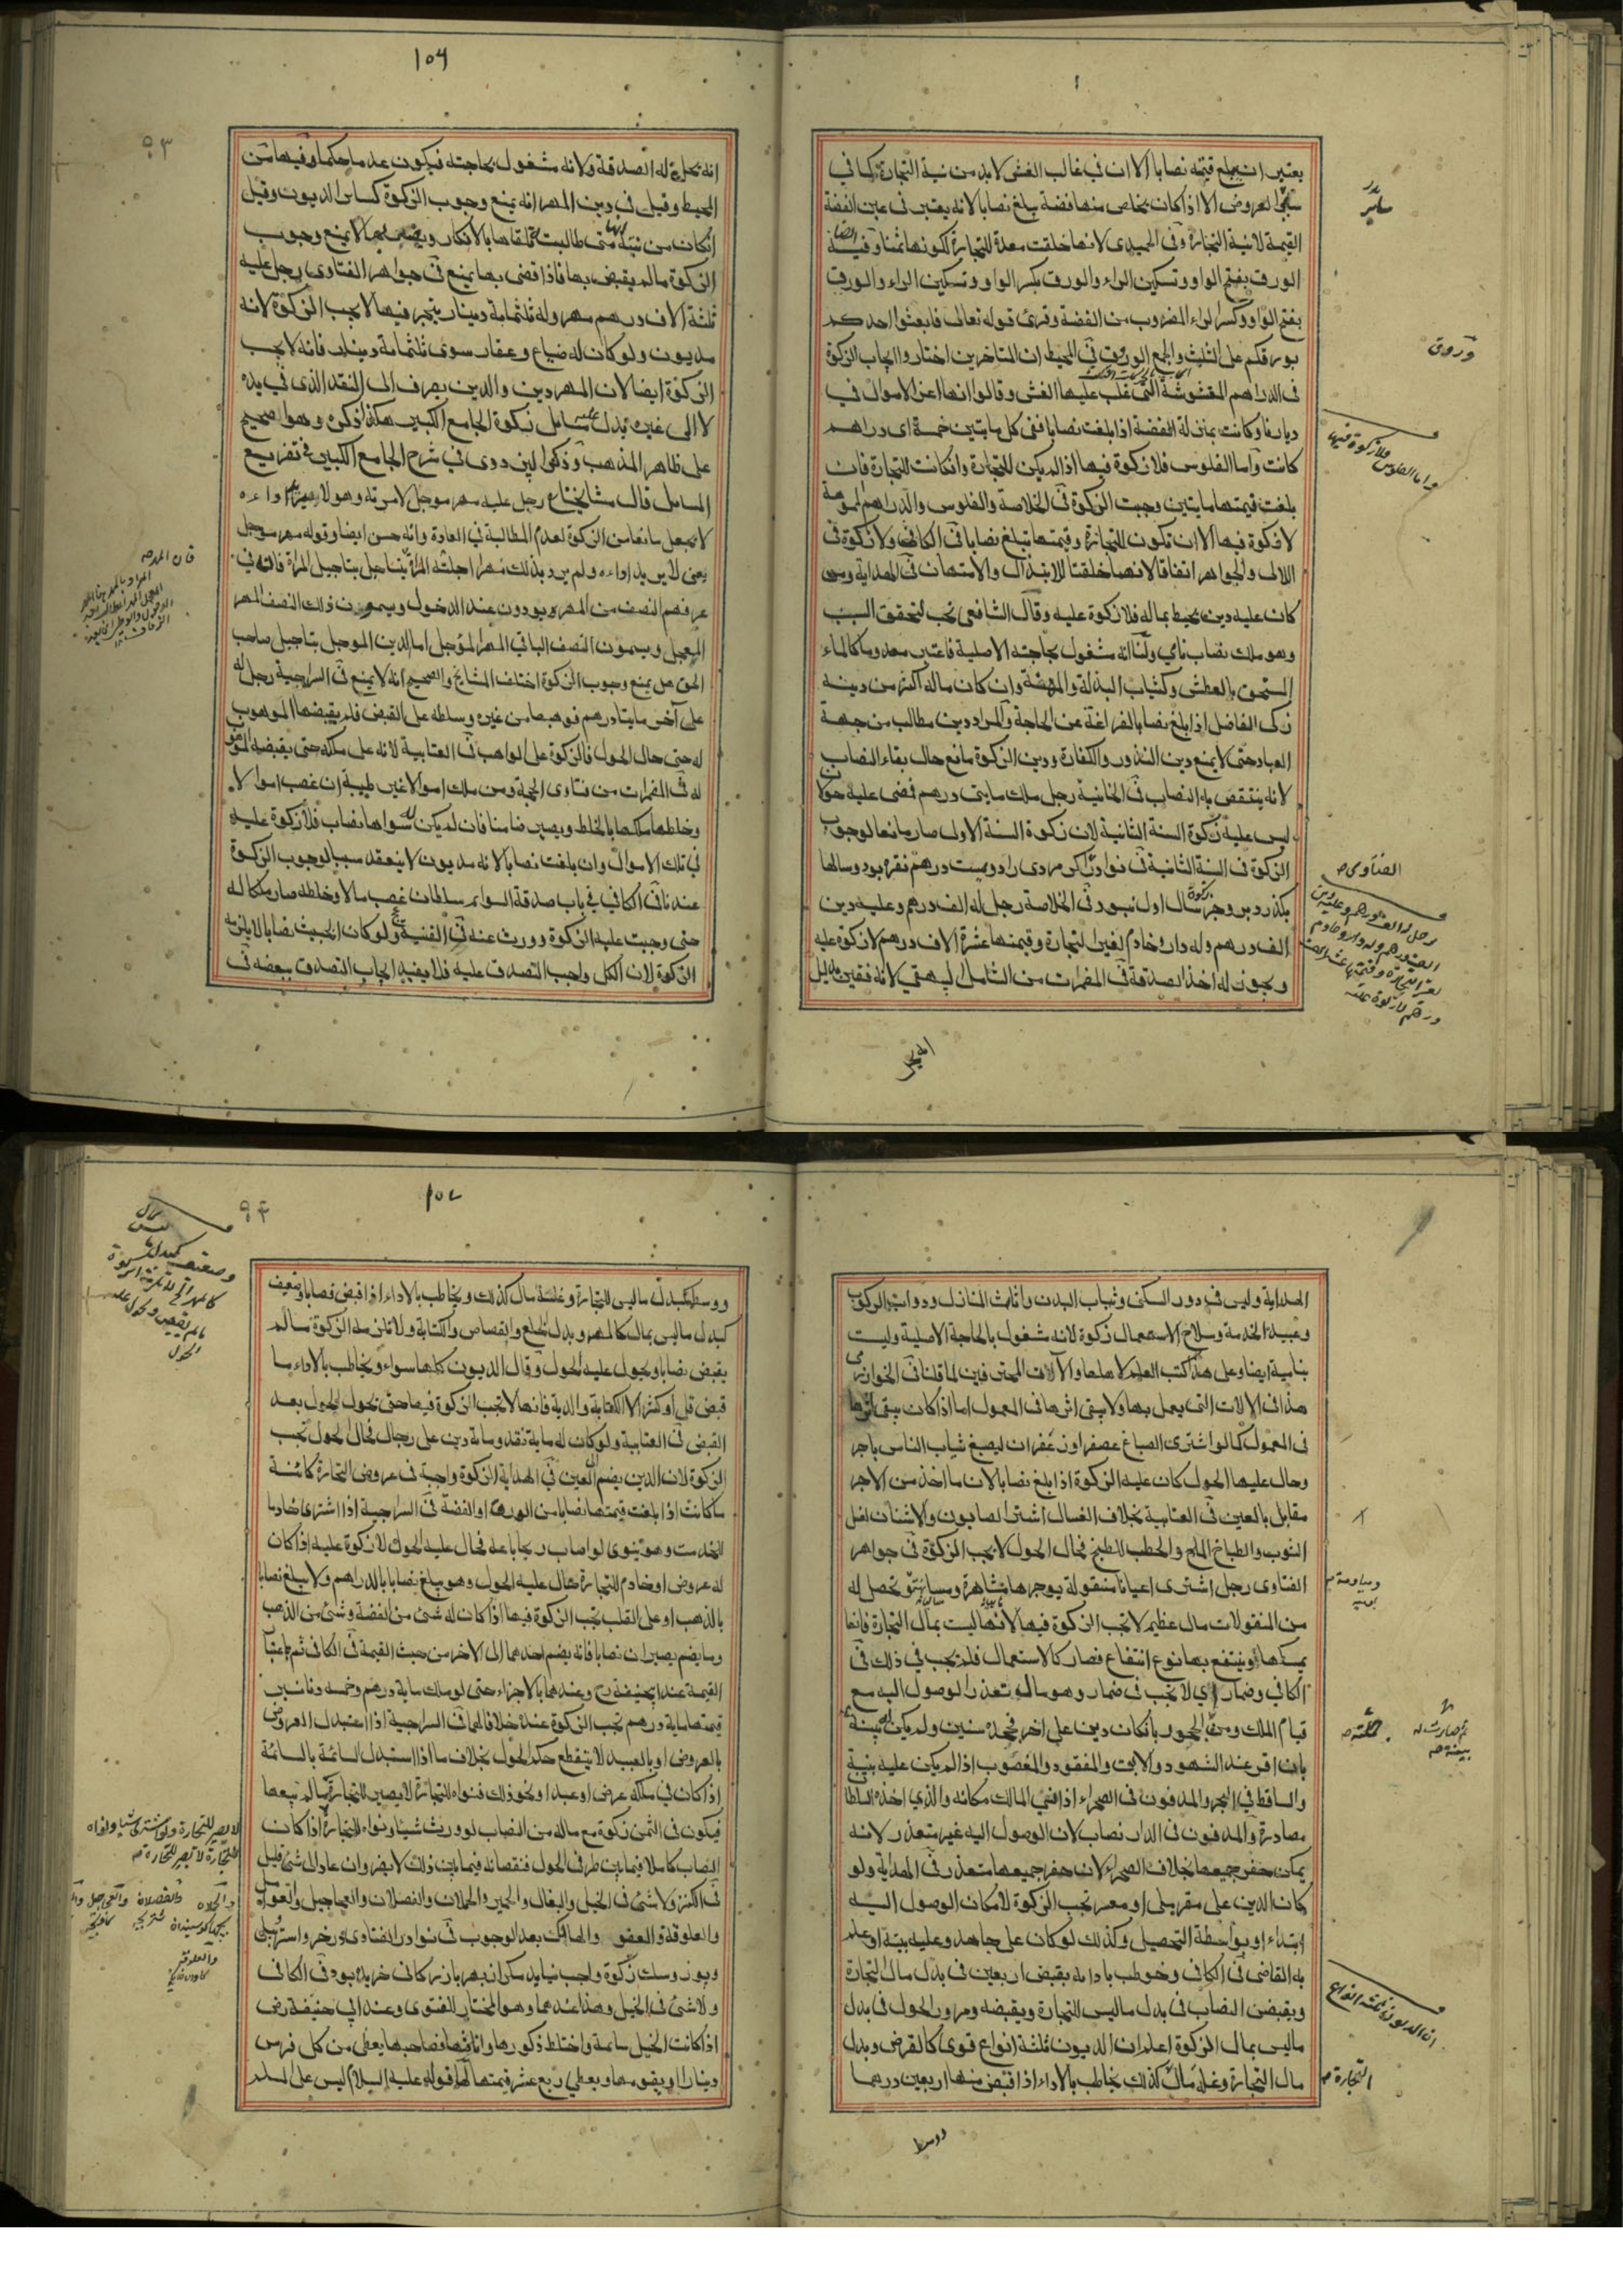 يعتبر ان يبلغ قيمته نصابا الا ان في غالب الغش لا بد من نية التجارة كما في
سائر العروض الا اذا كان يخلص منها فضة يبلغ نصابا لانه يعتبر في عين الفضة
القيمة لا نية التجارة وفي الحميدى لانها خلقت معدة للتجارة لكونها ثمنا وفيه ايضا
الورق بفتح الواو وتسكين الراء والورق بكسر الواو وتسكين الراء والورق
بفتح الواو وكسر الراء المضروب من الفضة وقرئ قوله تعالى فابعثوا احدكم
بورقكم على التثليث والجمع الوراق في المحيط ان المتاخرين اختاروا ايجاب الزكوة
فى الدراهم المغشوشة التي غلب عليها الغش وقالوا انها اعز الاموال في
ديارنا وكانت بمنزلة الفضة اذا بلغت نصابا ففى كل مايتين خمسة اى دراهم
كانت واما الفلوس فلا زكوة فيها اذا لم يكن للتجارة وان كانت للتجارة فان
بلغت قيمتها مايتين وجبت الزكوة في الخلاصة والفلوس والدراهم المموهة
لا زكوة فيها الا ان تكون للتجارة وقيمتها تبلغ نصابا في الكافي ولا زكوة فى
اللالى والجواهر اتفاقا لانها خلقتا للابتذال والامتهان في الهداية ومن
كان عليه دين يحيط بماله فلا زكوة عليه وقال الشافعى تجب لتحقق السبب
وهو ملك نصاب نامي ولنا انه مشغول بحاجته الاصلية فاعتبر معدوما كالماء
المستحق بالعطش وكثياب البذلة والمهنة وان كان ماله اكثر من دينه
زكى الفاضل اذا بلغ نصابا لفراغه عن الحاجة والمراد دين مطالب من جهة
العباد حتى لا يمنع دين النذور والكفارة ودين الزكوة مانع حال بقاء النصاب
لانه ينتقص به النصاب في الخانية رجل ملك مايتى درهم فمضى عليه حولان
ليس عليه زكوة السنة الثانية لان زكوة السنة الاولى صار مانعا لوجوب
الزكوة فى السنة الثانية في نوادر اكر مردى را دويست درهم نقره بود وسالها
بكذرد بروجز زكوة سال اول نبود في الخلاصة رجل له الف درهم وعليه دين
الف درهم وله دار وخادم لغير التجارة وقيمتها عشرة الاف درهم لا زكوة عليه
ويجوز له اخذ الصدقة في المضمرات من الشامل البيهقي لانه فقير بدليل
سائر
وروق
واما الفلوس فلا زكوة فيها
الفتاوى
رجل له الف درهم وعليه دين
الف درهم وله دار وخادم
لغير التجارة وقيمتها عشرة الاف
درهم لا زكوة عليه
انه يحل
١٥٦
٩٣
انه تحل له الصدقة ولانه مشغول بحاجته فيكون عدما حكما وفيها من
المحيط وقيل في دين المهر انه يمنع وجوب الزكوة كسائر الديون وقيل
ان كان من نيته انها متى طالبت تلقاها بالانكار لا يمنع وجوب
الزكوة ما لم يقبض بها فاذا قضى بها يمنع في جواهر الفتاوى رجل عليه
ثلثة الاف درهم مهر وله ثلثمائة دينار يتجر فيها لا يجب الزكوة لانه
مديون ولو كان له ضياع وعقار سوى ثلثمائة دينار فانه لا يجب
الزكوة ايضا لان المهر دين والدين يصرف الى النقد الذى في يده
لا الى غيره يدل عليه مسائل زكوة الجامع الكبير هكذا ذكره وهو الصحيح
على ظاهر المذهب وذكر البزدوى في شرح الجامع الكبير في تفريع
المسائل قال مشايخنا رجل عليه مهر موجل لامرته وهو لا يريد اداءه
لا يجعل مانعا من الزكوة لعدم المطالبة في العادة وانه حسن ايضا وقوله مهر موجل
يعنى لا يريد اداءه ولم يرد بذلك مهرا اجلته المراة بتاجيل المراة فانه في
عرفهم النصف من المهر يودون عند الدخول ويسمون ذلك النصف المهر
المعجل ويسمون النصف الباقي المهر المؤجل اما الدين الموجل بتاجيل صاحب
الحق هل يمنع وجوب الزكوة اختلف المشائخ والصحيح انه لا يمنع في السراجية رجل له
على آخر مايتا درهم فوهبها من غيره وسلطه على القبض فلم يقبضها الموهوب
له حتى حال الحول فالزكوة على الواهب في العتابية لانه على ملكه حتى يقبضه الموهوب
له في المضمرات من فتاوى الحجة ومن ملك اموالا غير طيبة ان غصب اموالا
وخلطها ملكها بالخلط ويصير ضامنا فان لم يكن له سواها نصاب فلا زكوة عليه
في تلك الاموال وان بلغت نصابا لانه مديون لا ينعقد سببا لوجوب الزكوة
عندنا في الكافي في باب صدقة السوائم سلطان غصب مالا وخلطه صار ملكا له
حتى وجبت عليه الزكوة وورث عنه في القنية ولو كان الخبيث نصابا لا يلزمه
الزكوة لان الكل واجب التصدق عليه فلا يفيد ايجاب التصدق ببعضه في
الهداية وليس في دور السكنى وثياب البدن واثاث المنازل ودواب الركوب
وعبيد الخدمة وسلاح الاستعمال زكوة لانه مشغول بالحاجة الاصلية وليست
بنامية ايضا وعلى هذا كتب العلم لاهلها والآلات المحترفين لما قلنا في الخوارزمى
هذا في الالات التى يعمل بها ولا يبقى اثرها في المعمول اما اذا كان يبقى اثرها
فى المعمول كما لو اشترى الصباغ عصفرا وزعفران ليصبغ ثياب الناس باجر
وحال عليها الحول كان عليه الزكوة اذا بلغ نصابا لان ما اخذ من الاجر
مقابل بالعين في العتابية بخلاف الغسال اشترا الصابون والاشنان لغسل
الثوب والطباخ الملح والحطب للطبخ فحال الحول لا يجب الزكوة في جواهر
الفتاوى رجل اشترى اعيانا منقولة يوجرها مشاهرة ومسانهة تحصل له
من المنقولات مال عظيم لا تجب الزكوة فيها لانها ليست بمال التجارة فانها
يمسكها وينتفع بها نوع انتفاع فصار كالاستعمال فلم تجب في ذلك في
الكافي وضمار اي لا تجب فى ضمار وهو مال تعذر الوصول اليه مع
قيام الملك ومن الجحود بان كان دين على اخر فجحده سنين ولم يكن له بينة
بان اقر عند الشهود والابق والمفقود والمغصوب اذا لم يكن عليه بينة
والساقط في البحر والمدفون فى الصحراء اذا نسي المالك مكانه والذي اخذه السلطان
مصادرة والمدفون فى الدار نصاب لان الوصول اليه غير متعذر لانه
يمكن حفر جميعها بخلاف الصحراء لان حفر جميعها متعذر في الهداية ولو
كان الدين على مقر ملى او معسر تجب الزكوة لامكان الوصول اليه
ابتداء او بواسطة التحصيل وكذلك لو كان على جاحد وعليه بينة او علم
به القاضي في الكافي وخوطب باداءه بقبض اربعين فى بدل مال التجارة
وبقبض النصاب في بدل ما ليس للتجارة وبقبضه ومرور الحول في بدل
ما ليس بمال الزكوة اعلم ان الديون ثلثة انواع قوى كالقرض وبدل
مال التجارة وغلة مال كذلك يخاطب بالاداء اذا قبض منها اربعين درهما
ثم صارت له
بينة
ان الديون ثلثة انواع
التجارة
ووسط
١٥٧
٩٤
ووسط كبدل ما ليس للتجارة وغلة مال كذلك ويخاطب بالاداء اذا قبض نصابا وضعيف
كبدل ما ليس بمال كالمهر وبدل الخلع والقصاص والكتابة ولا تلزمه الزكوة ما لم
يقبض نصابا ويحول عليه الحول وقالا الديون كلها سواء ويخاطب بالاداء ما
قبض قل او كثر الا الكتابة والدية فانها لا تجب الزكوة فيها حتى يحول الحول بعد
القبض في العتابية ولو كان له ماية نقد وماية دين على رجال فحال الحول تجب
الزكوة لان الدين يضم الى العين في الهداية الزكوة واجبة في عروض التجارة كائنة
ما كانت اذا بلغت قيمتها نصابا من الورق او الفضة في السراجية اذا اشترى خادما
للخدمت وهو ينوى لو اصاب ربحا باعه فحال عليه الحول لا زكوة عليه اذا كان
له عروض او خادم للتجارة حال عليه الحول وهو يبلغ نصابا بالدراهم ولا يبلغ نصابا
بالذهب او على القلب تجب الزكوة فيها اذا كان له شئ من الفضة وشئ من الذهب
وما يضم يصيران نصابا فانه يضم احدهما الى الاخر من حيث القيمة في الكافى ثم باعتبار
القيمة عند ابيحنيفة رح وعندهما بالاجزاء حتى لو ملك ماية درهم وخمسة دنانير
قيمتها ماية درهم تجب الزكوة عنده خلافا لهما في السراجية اذا استبدل العروض
بالعروض او بالعبيد لا ينقطع حكم الحول بخلاف ما اذا استبدل السائمة بالسائمة
اذ كان في ملكه عرض او عبد او نحو ذلك فنواه للتجارة لا يصير للتجارة ما لم يبعها
فيكون في الثمن زكوة مع ماله من النصاب لو ورث شيئا ونواه للتجارة اذا كان
النصاب كاملا فيما بين طرفي الحول فنقصانه فيما بين ذلك لا يضر وان عاد الى شئ قليل
في الكنز ولا شئ في الخيل والبغال والحمير والحملان والفصلان والعجاجيل والعوامل
والعلوفة والعفو والهالك بعد الوجوب في نوادر الفتاوى خر واستر
ويوز وسك زكوة واجب نيايد مكر ان بهر بازركانى خريده بود في الكافى
ولا شئ في الخيل وهذا عندهما وهو المختار للفتوى وعند ابي حنيفة رض
اذا كانت الخيل سائمة واختلط ذكورها واناثها فصاحبها يعطى من كل فرس
دينارا او يقومها ويعطي ربع عشر قيمتها لهما قوله عليه السلام ليس على المسلم
لا يصير للتجارة ولو اشترى شيئا ونواه
للتجارة لا يصير للتجارة